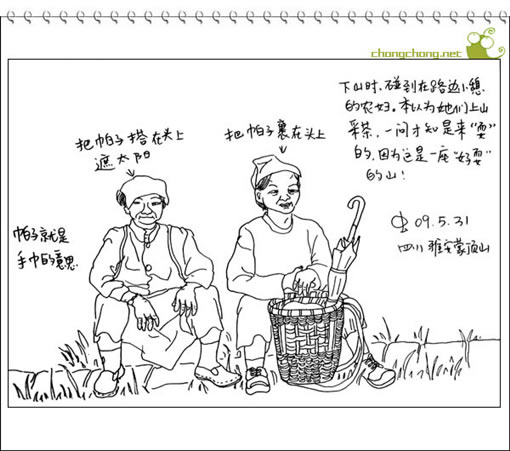 chongchong.net
下山时.碰到在路边小憩
的农妇。本以为她们上山
采茶.一问才知是来“耍”
的.因为这是一座“好耍”
的山！
把帕子搭在头上
遮太阳
把帕子裹在头上
帕子就是
手巾的意思.
09.5.31
四川 雅安蒙顶山